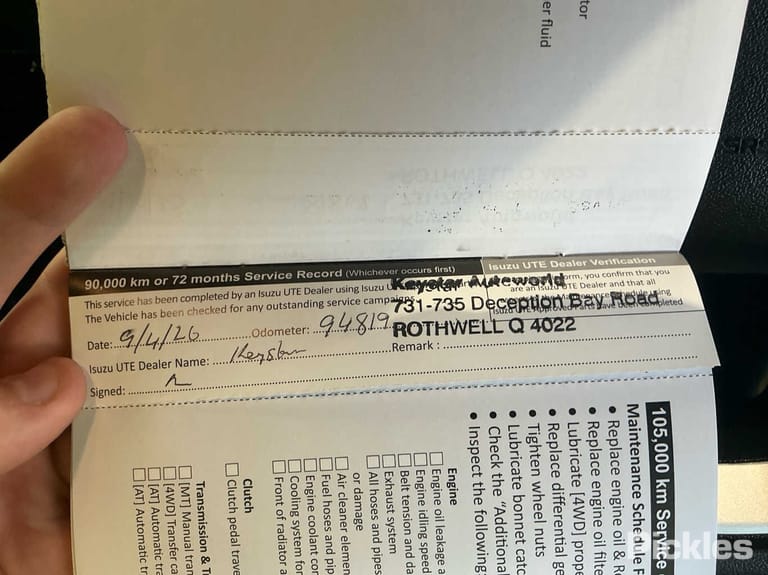 tor
er fluid
90,000 km or 72 months Service Record (Whichever occurs first)
Isuzu UTE Dealer Verification
This service has been completed by an Isuzu UTE Dealer using Isuzu
The Vehicle has been checked for any outstanding service campaigns.
orm, you confirm that you
are an Isuzu UTE Dealer and that all
schedule using
Isuzu UTE Approved Parts have been completed
Keystar Autoworld
731-735 Deception Bay Road
ROTHWELL Q 4022
Date: 9/4/26 Odometer: 94819
Isuzu UTE Dealer Name: Keystar Remark :
Signed:
105,000 km Service
Maintenance Sche
• Replace engine oil & R
• Replace engine oil filte
• Lubricate [4WD] prope
• Replace differential ge
• Tighten wheel nuts
• Lubricate bonnet catc
• Check the "Additional
• Inspect the following:
Engine
Engine oil leakage a
Engine idling speed
Belt tension and da
Exhaust system
All hoses and pipes
or damage
Air cleaner elemen
Fuel hoses and pip
Engine coolant cor
Cooling system for
Front of radiator a
Clutch
Clutch pedal trave
Transmission & T
[MT] Manual tran
[4WD] Transfer ca
[AT] Automatic tra
[AT] Automatic tr
Pickles